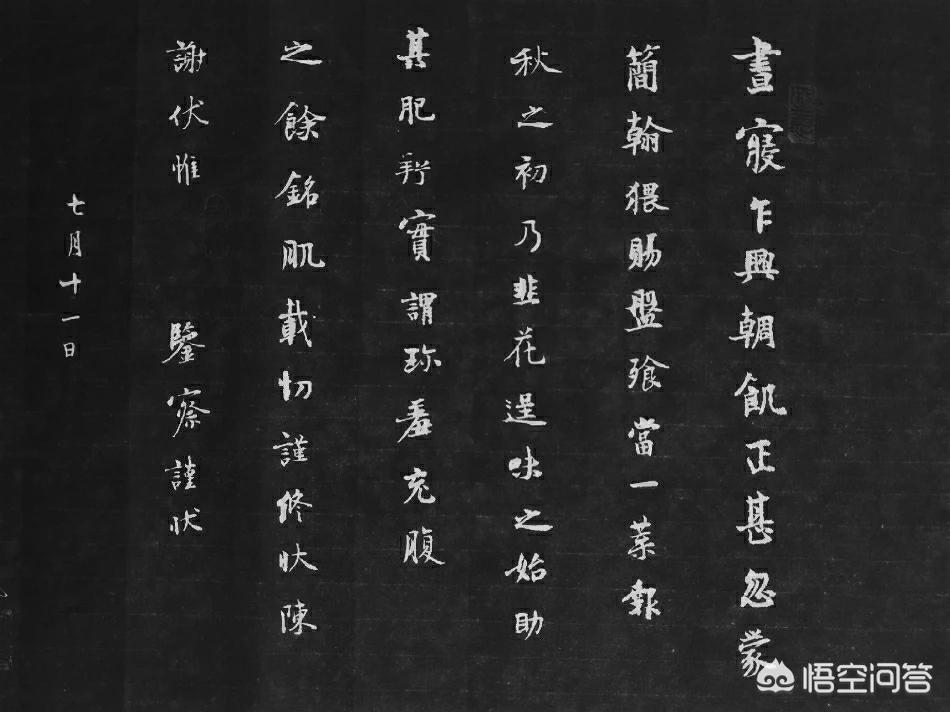 晝寢乍興朝飢正甚忽蒙
簡翰猥賜盤飡當一葉報
秋之初乃韭花逞味之始助
其肥羜實謂珎羞充腹
之餘銘肌載切謹修狀陳
謝伏惟 鑒察謹狀
七月十一日
悟空问答